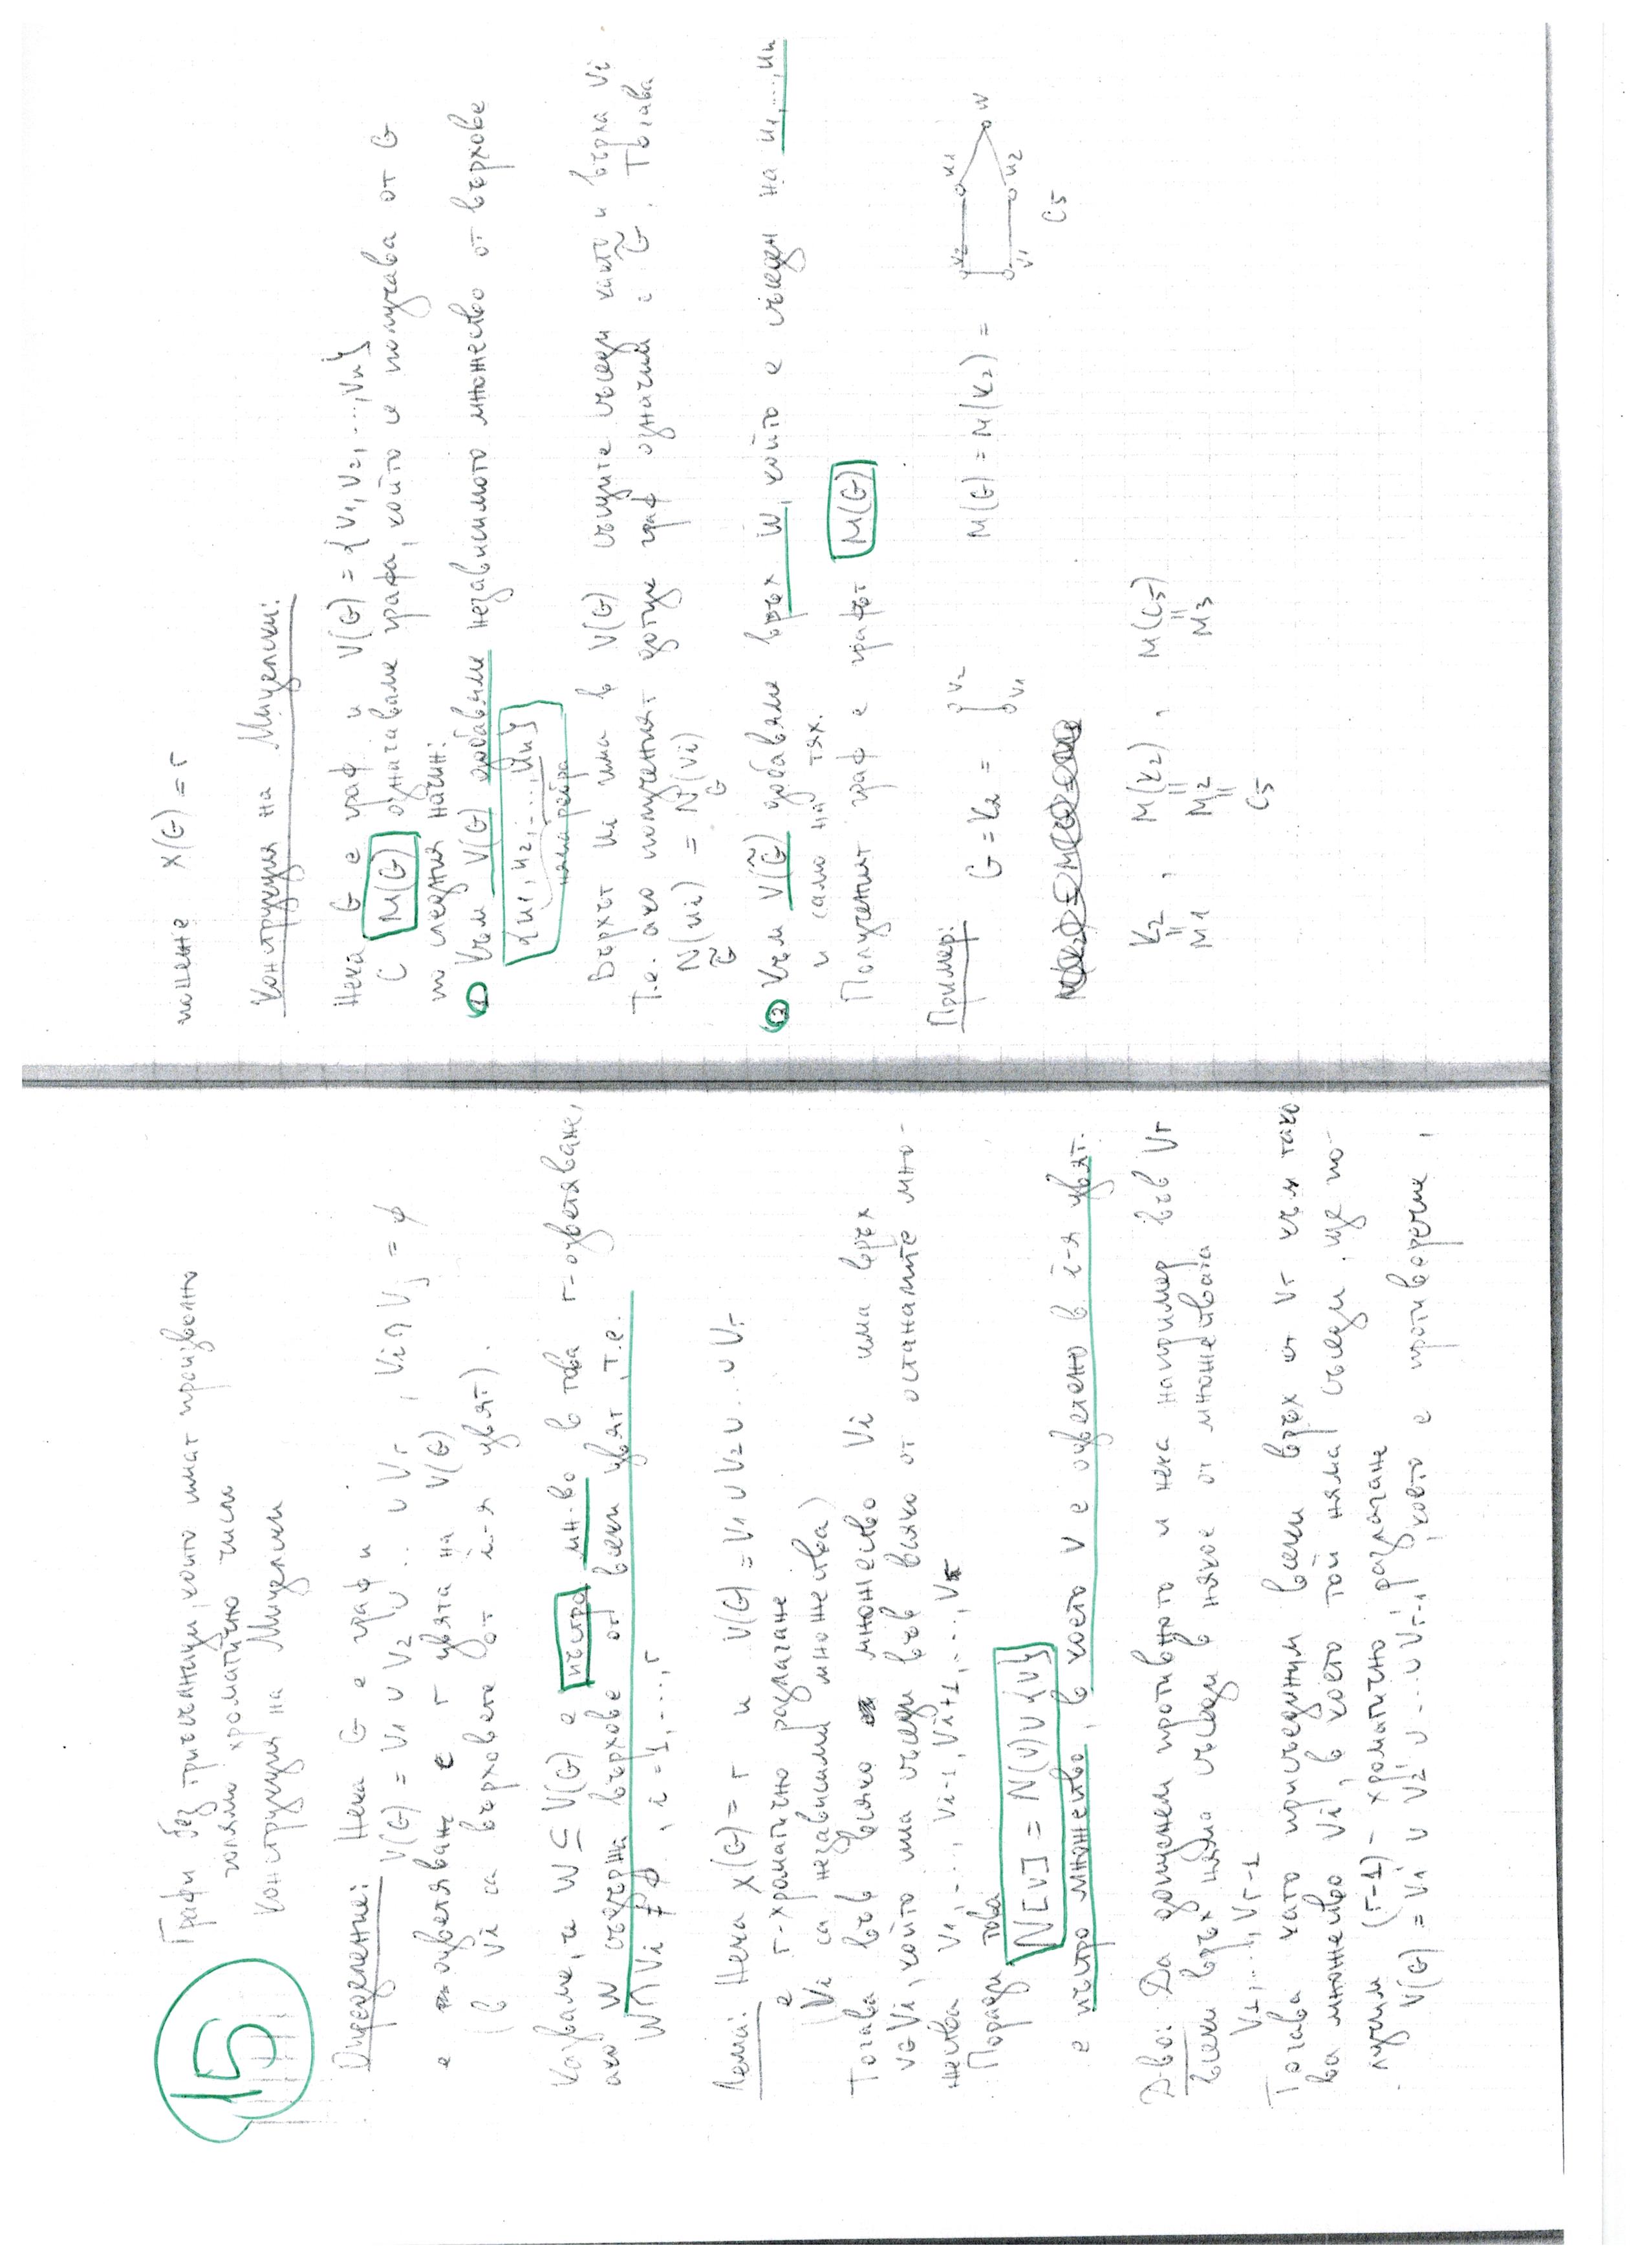 15
Графи без триъгълници, които имат произволно
голямо хроматично число
Конструкция на Мицелски
Определение: Нека G е граф и
V(G) = V1 ∪ V2 ∪ ... ∪ Vr , Vi ∩ Vj = ∅
е оцветяване с r цвята на V(G)
(в Vi са върховете от i-я цвят).
Казваме, че W ⊆ V(G) е пъстро мн-во в това r-оцветяване,
ако W съдържа върхове от всеки цвят, т.е.
W ∩ Vi ≠ ∅ , i = 1, ..., r
Лема: Нека χ(G) = r и V(G) = V1 ∪ V2 ∪ ... ∪ Vr
е r-хроматично разлагане
(Vi са независими множества)
Тогава във всяко множество Vi има връх
v∈Vi, който има съседи във всяко от останалите мно-
жества V1, ..., Vi-1, Vi+1, ..., Vr
Поради това
N[v] = N(v) ∪ {v}
е пъстро множество, в което v е оцветено в i-я цвят.
Д-во: Да допуснем противното и нека например във Vr
всеки връх няма съседи в някое от множествата
V1, ..., Vr-1
Тогава като присъединим всеки връх от Vr към тако
ва множество Vi, в което той няма съседи, ще по-
лучим (r-1) - хроматично разлагане
V(G) = V1' ∪ V2' ∪ ... ∪ Vr-1', което е противоречие,
понеже χ(G) = r
Конструкция на Мицелски:
Нека G е граф и V(G) = {v1, v2, ..., vn}
С M(G) означаваме графа, който се получава от G
по следния начин:
1 Към V(G) добавяме независимото множество от върхове
{u1, u2, ..., un}
няма ребра
Върхът ui има в V(G) същите съседи както и върха vi
Т.е. ако полученият дотук граф означим с G̃, Тогава
N(ui) = N(vi)
G̃ G
2 Към V(G̃) добавяме връх w, който е съседен на u1, ..., un
и само на тях.
Полученият граф е графът M(G)
Пример: G = K2 = v2 v1 M(G) = M(K2) = v2 u1 w v1 u2
C5
K2 , M(K2) , M(C5)
M1 M2 M3
C5